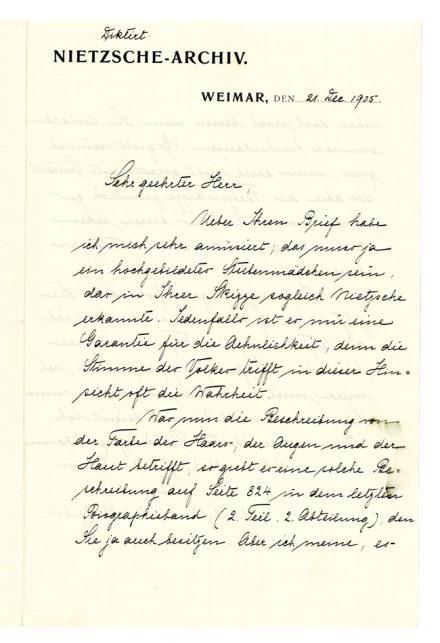 Diktirt
NIETZSCHE-ARCHIV.
WEIMAR, DEN 21. Dec. 1905.
Sehr geehrter Herr,
Ueber Ihren Brief habe
ich mich sehr amüsiert; das muss ja
ein hochgebildetes Stubenmädchen sein,
das in Ihrer Skizze sogleich Nietzsche
erkannte. Jedenfalls ist es mir eine
Garantie für die Aehnlichkeit, denn die
Stimme des Volkes trifft in dieser Hin-
sicht oft die Wahrheit.
Was nun die Beschreibung von
der Farbe des Haars, der Augen und der
Haut betrifft, so giebt es eine solche Be-
schreibung auf Seite 824 in dem letzten
Biographieband (2. Teil. 2. Abteilung), den
Sie ja auch besitzen. Aber ich meine, es